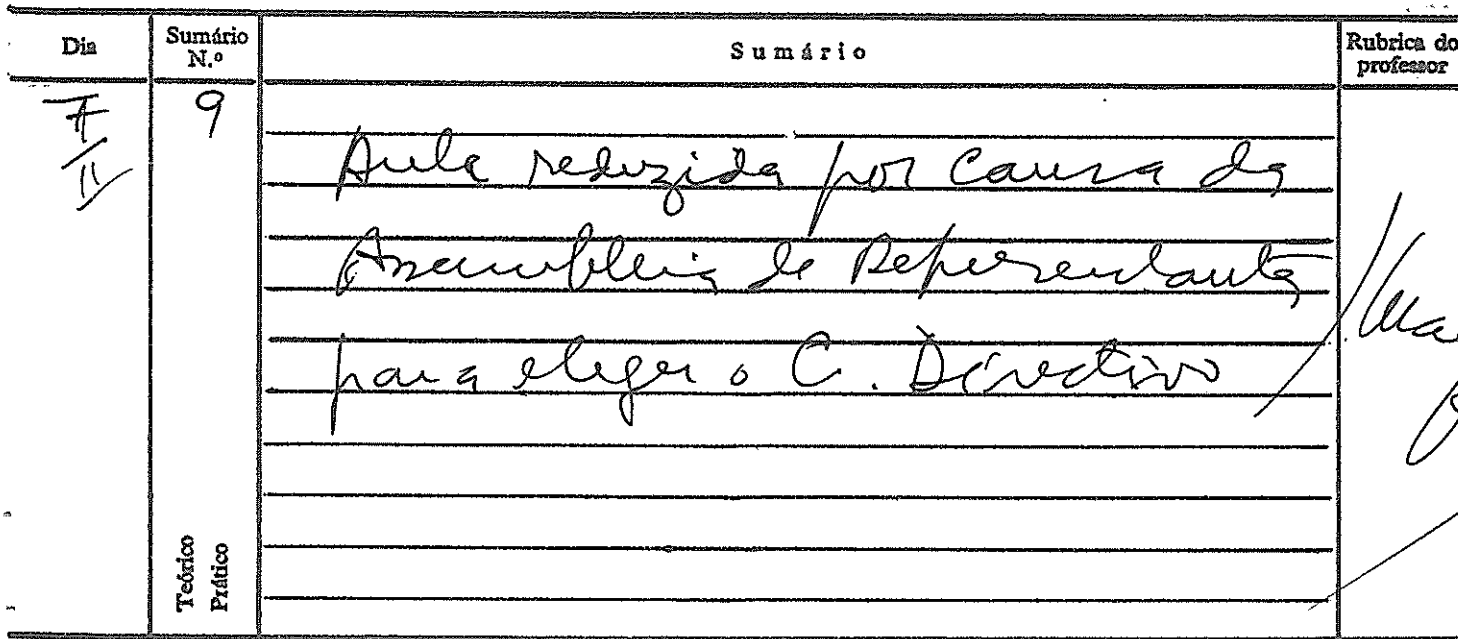 Dia Sumário N.º Sumário Rubrica do professor
7/11 9
Aula reduzida por causa da
Assembleia de Representantes
para eleger o C. Directivo
Teórico
Prático